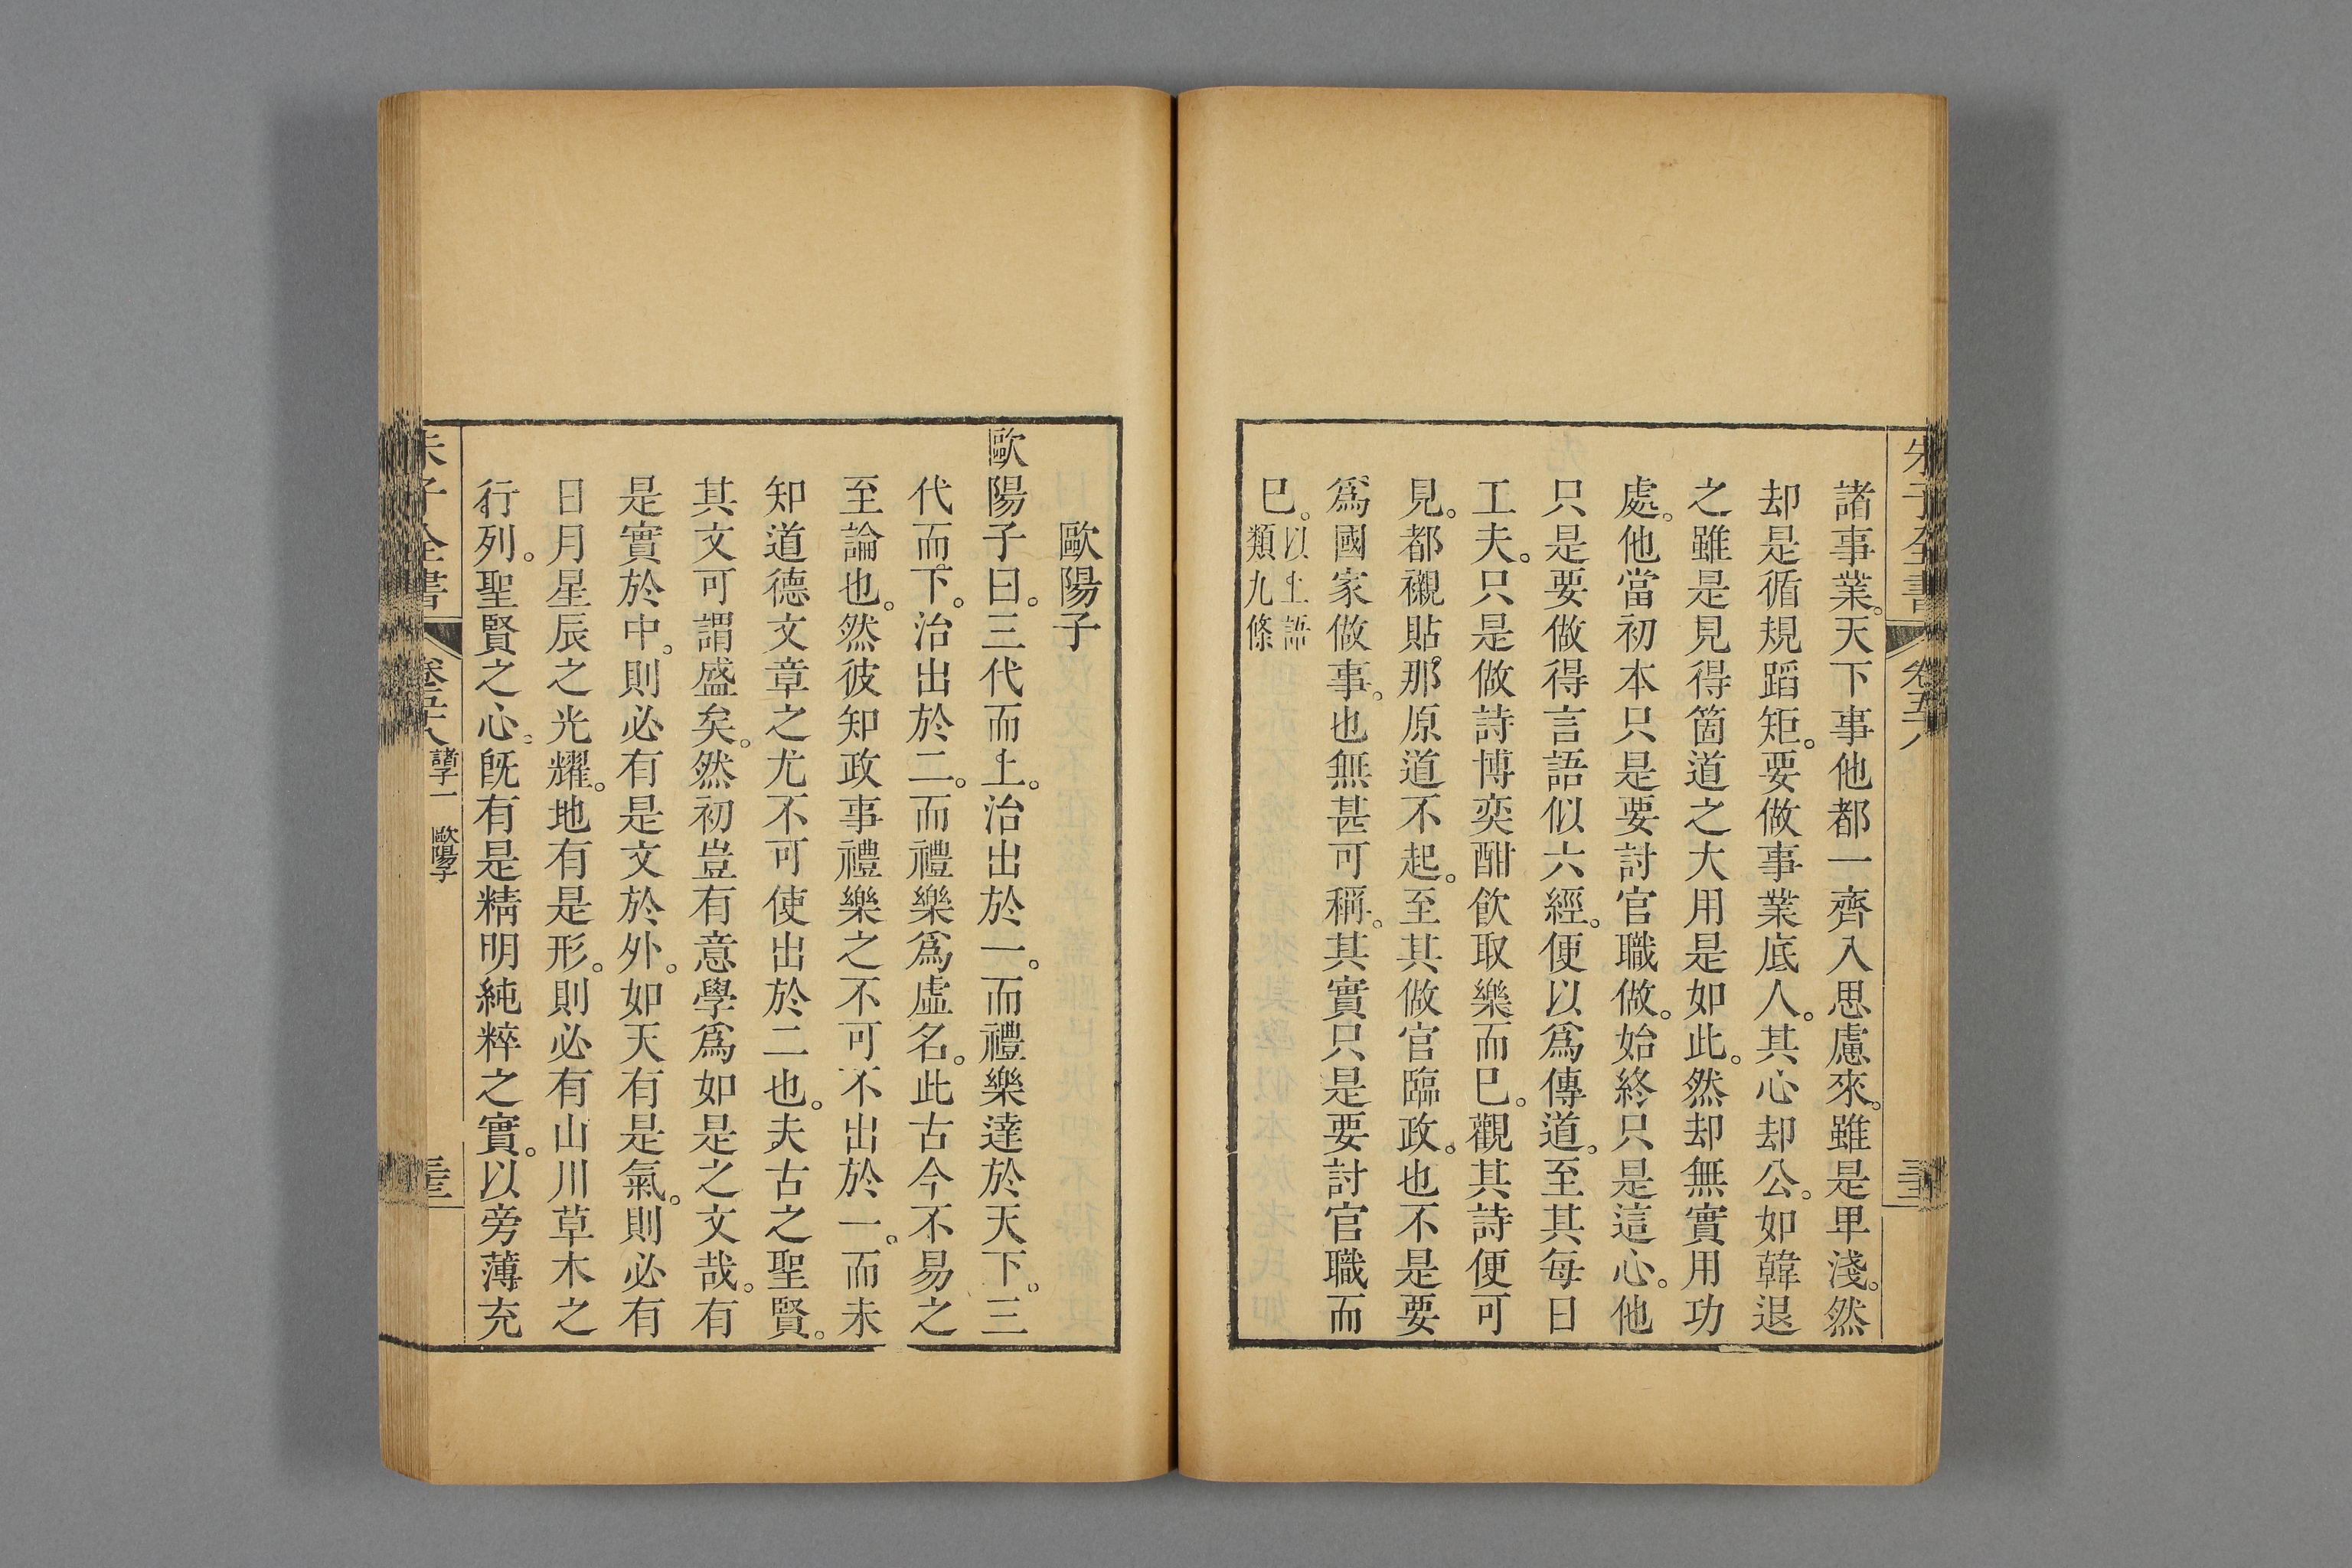 諸事業。天下事他都一齊入思慮來。雖是𤰞淺。然
却是循規蹈矩。要做事業底人。其心却公。如韓退
之雖是見得箇道之大用是如此。然却無實用功
處。他當初本只是要討官職做。始終只是這心。他
只是要做得言語似六經。便以爲傳道。至其每日
工夫。只是做詩博奕酣飲取樂而已。觀其詩便可
見。都襯貼那原道不起。至其做官臨政。也不是要
爲國家做事。也無甚可稱。其實只是要討官職而
已。以上語
類九條
歐陽子
歐陽子曰。三代而上。治出於一。而禮樂達於天下。三
代而下。治出於二。而禮樂爲虛名。此古今不易之
至論也。然彼知政事禮樂之不可不出於一。而未
知道德文章之尤不可使出於二也。夫古之聖賢。
其文可謂盛矣。然初豈有意學爲如是之文哉。有
是實於中。則必有是文於外。如天有是氣。則必有
日月星辰之光耀。地有是形。則必有山川草木之
行列。聖賢之心。旣有是精明純粹之實。以旁薄充
朱子全書 卷五十八 諸子一 歐陽子